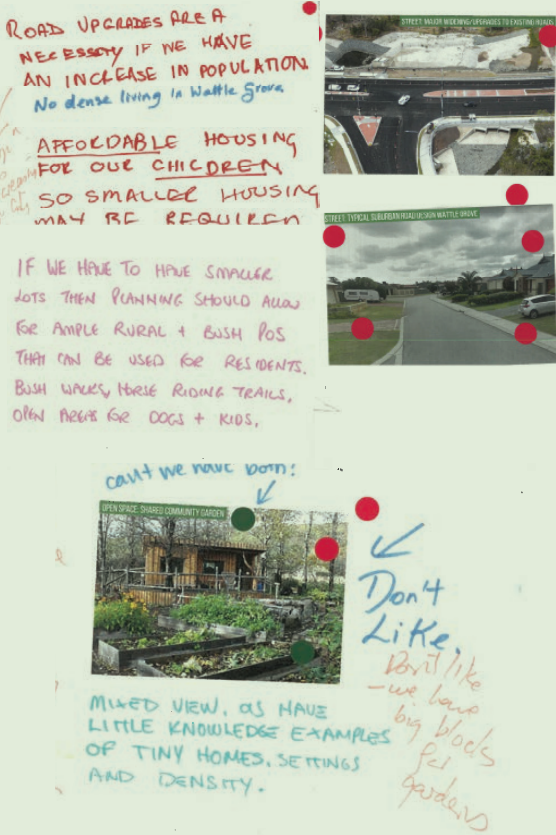 ROAD UPGRADES ARE A
NECESSARY IF WE HAVE
AN INCREASE IN POPULATION
No dense living in Wattle Grove
AFFORDABLE HOUSING
FOR OUR CHILDREN
SO SMALLER HOUSING
MAY BE REQUIRED
STREET: MAJOR WIDENING/UPGRADES TO EXISTING ROADS
STREET: TYPICAL SUBURBAN ROAD DESIGN WATTLE GROVE
IF WE HAVE TO HAVE SMALLER
LOTS THEN PLANNING SHOULD ALLOW
FOR AMPLE RURAL + BUSH POS
THAT CAN BE USED FOR RESIDENTS.
BUSH WALKS, HORSE RIDING TRAILS,
OPEN AREAS FOR DOGS + KIDS.
can't we have both?
OPEN SPACE: SHARED COMMUNITY GARDEN
Don't
Like.
Don't like
- we have
big blocks
for
gardens
MIXED VIEW. AS HAVE
LITTLE KNOWLEDGE EXAMPLES
OF TINY HOMES, SETTINGS
AND DENSITY.